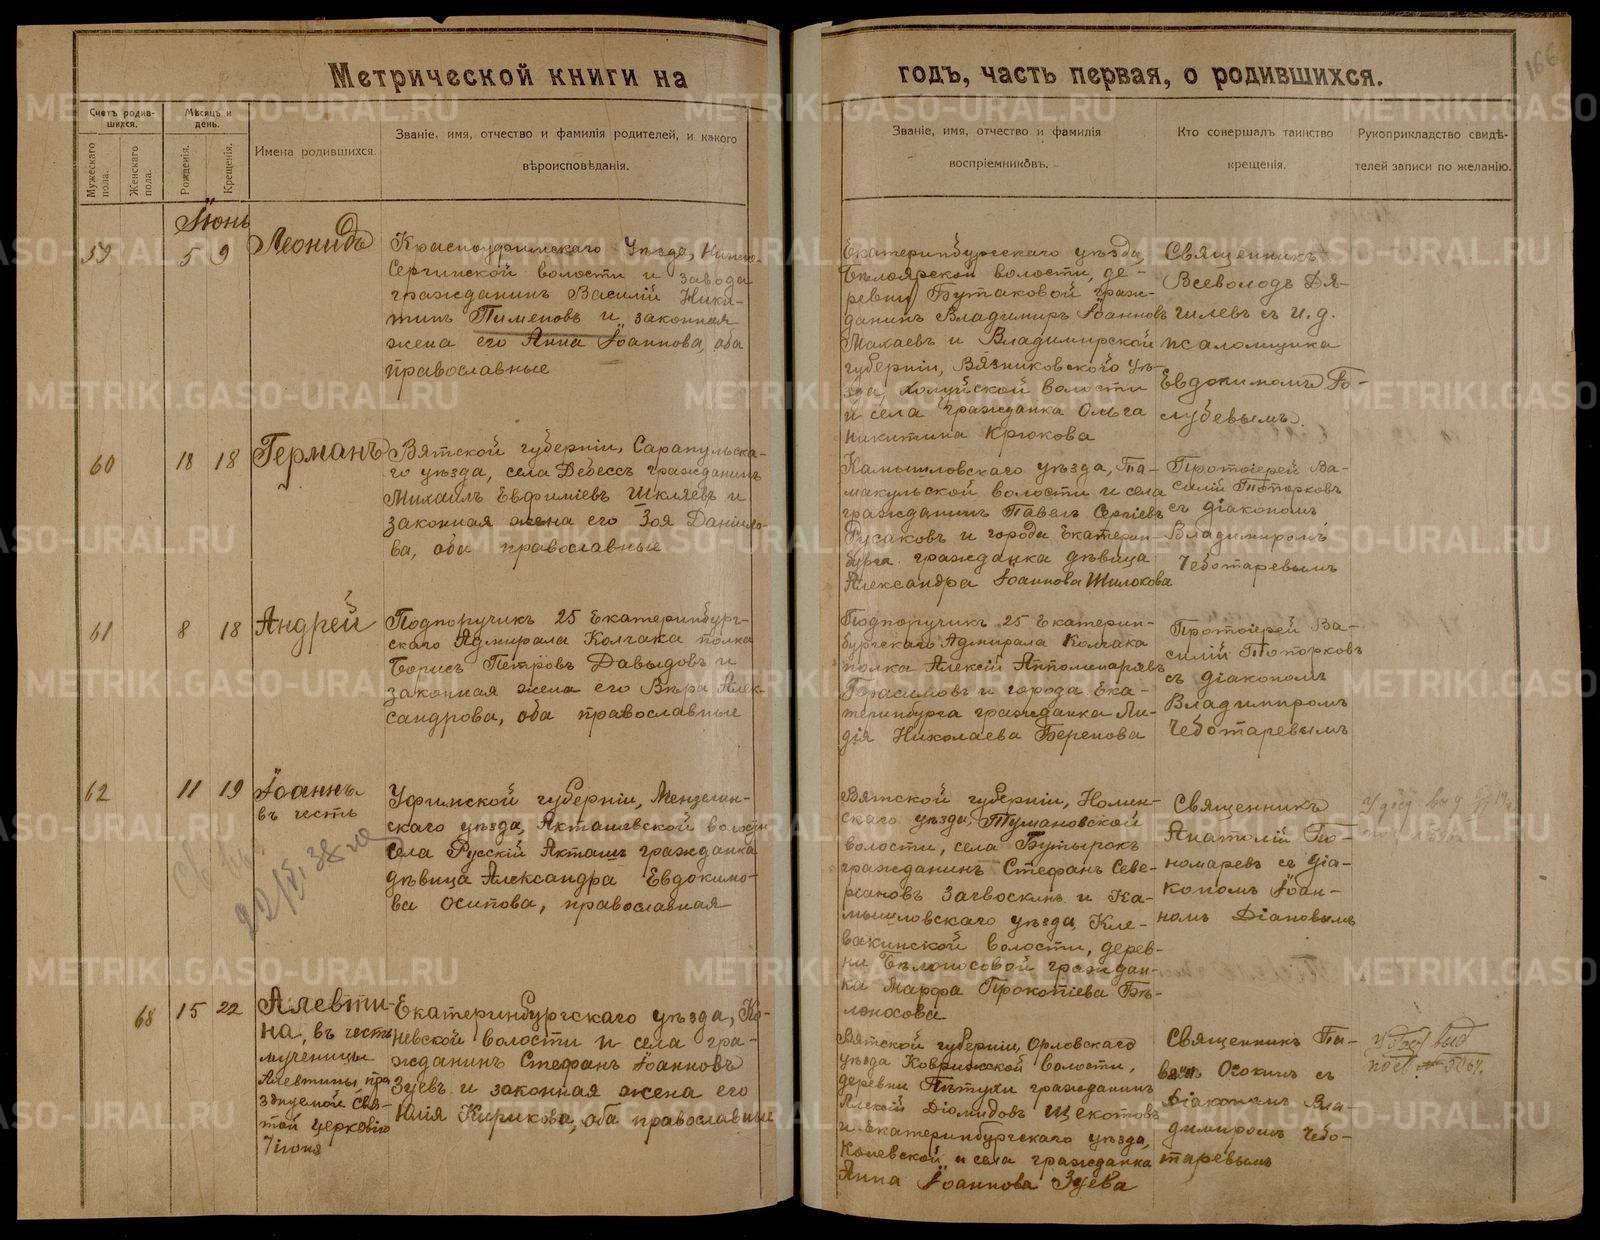 Метрической книги на
годъ, часть первая, о родившихся.
166
Счетъ родив-
шихся.
Мѣсяцъ и
день.
Мужескаго
пола.
Женскаго
пола.
Рожденія.
Крещенія.
Имена родившихся.
Званіе, имя, отчество и фамилія родителей, и какого
вѣроисповѣданія.
Званіе, имя, отчество и фамилія
воспріемниковъ.
Кто совершалъ таинство
крещенія.
Рукоприкладство свидѣ-
телей записи по желанію.
Іюнь
59
5
9
Леонидъ
Красноуфимскаго уѣзда, Нижне
Сергинской волости и завода
гражданинъ Василій Ники-
тинъ Пименовъ и законная
жена его Анна Іоаннова, оба
православные
Екатеринбургскаго уѣзда,
Бѣлоярской волости, де-
ревни Бутаковой граж-
данинъ Владимиръ Іоанновъ
Махаевъ и Владимирской
губерніи, Вязниковскаго уѣ-
зда, Холуйской волости
и села гражданка Ольга
Никитина Крюкова
Священникъ
Всеволодъ Дя-
гилевъ съ и.д.
псаломщика
Евдокимомъ Го-
лубевымъ.
60
18
18
Германъ
Вятской губерніи, Сарапульска-
го уѣзда, села Дебессъ гражданинъ
Михаилъ Евфиміевъ Шкляевъ и
законная жена его Зоя Данило-
ва, оба православные
Камышловскаго уѣзда, Та-
макульской волости и села
гражданинъ Павелъ Сергіевъ
Русаковъ и города Екатерин-
бурга гражданка дѣвица
Александра Іоаннова Шилохова
Протоіерей Ва-
силій Топорковъ
съ діакономъ
Владимиромъ
Чеботаревымъ
61
8
18
Андрей
Подпоручикъ 25 Екатеринбург-
скаго Адмирала Колчака полка
Борисъ Петровъ Давыдовъ и
законная жена его Вѣра Алек-
сандрова, оба православные
Подпоручикъ 25 Екатерин-
бургскаго Адмирала Колчака
полка Алексій Апполинаріевъ
Герасимовъ и города Ека-
теринбурга гражданка Ли-
дія Николаева Беренова
Протоіерей Ва-
силій Топорковъ
съ діакономъ
Владимиромъ
Чеботаревымъ
62
11
19
Іоаннъ
въ честь
22/IV, 38 го
Уфимской губерніи, Мензелин-
скаго уѣзда, Акташевской волости
села Русскій Акташъ гражданка
дѣвица Александра Евдокимо-
ва Осипова, православная
Вятской губерніи, Нолин-
скаго уѣзда, Тумановской
волости, села Бутырокъ
гражданинъ Стефанъ Севе-
ріановъ Загвоскинъ и Ка-
мышловскаго уѣзда, Кле-
вакинской волости, дерев-
ни Бѣлоносовой граждан-
ка Марфа Прокопіева Бѣ-
лоносова
Священникъ
Анатолій По-
номаревъ съ діа-
кономъ Іоан-
номъ Діановымъ
68
15
22
Алевти-
на, въ честь
мученицы
Алевтины, пра
зднуемой Свя-
той церковію
7 іюня
Екатеринбургскаго уѣзда, Ко-
невской волости и села гра-
жданинъ Стефанъ Іоанновъ
Зуевъ и законная жена его
Юлія Кирикова, оба православные
Вятской губерніи, Орловскаго
уѣзда Ковринской волости,
деревни Пѣтухи гражданинъ
Алексій Діомидовъ Щекотовъ
и Екатеринбургскаго уѣзда,
Коневской и села гражданка
Анна Іоаннова Зуева
Священникъ Па-
велъ Осокинъ съ
діакономъ Вла-
димиромъ Чебо-
таревымъ
METRIKI.GASO-URAL.RU